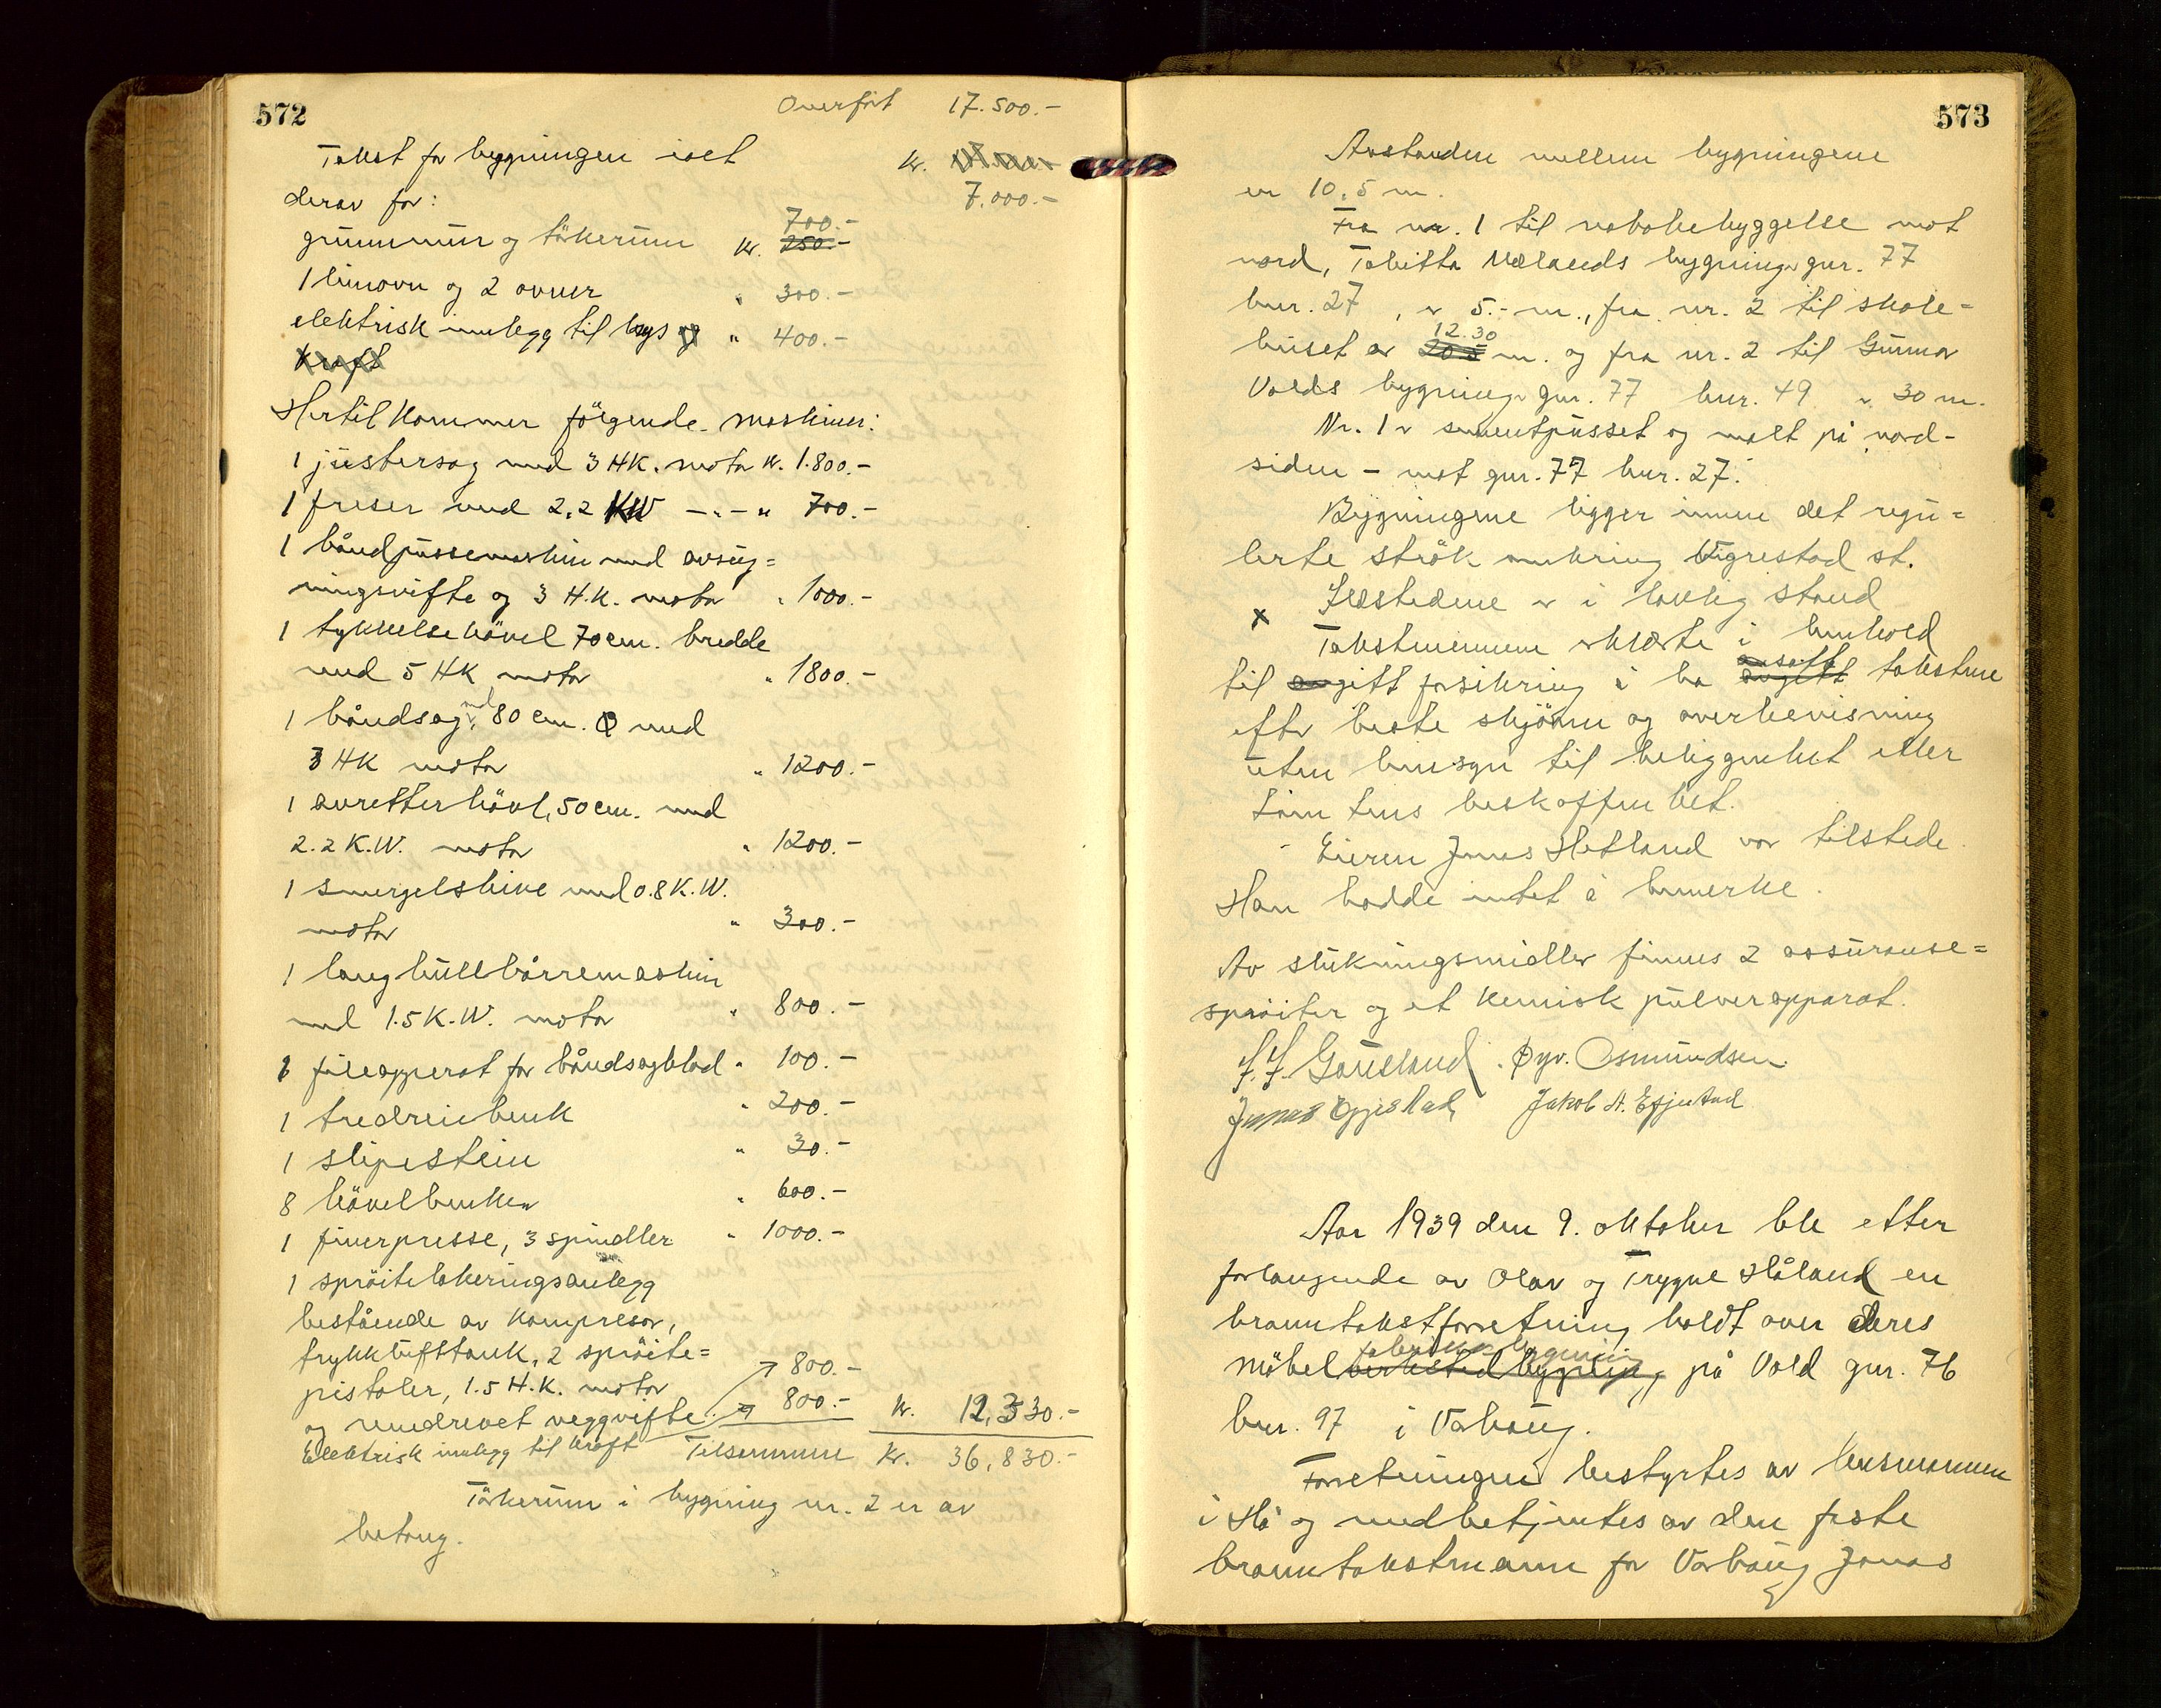 572
Overført 17.500.-
Takst for bygningen ialt kr.
derav for: 7.000.-
700.-
grunnmur og törkerum kr. 250.-
1 limovn og 2 ovner " 300.-
elektrisk innlegg til lys og " 400.-
kraft
Hertil kommer fölgende maskiner:
1 justersag med 3 HK. motor kr. 1.800.-
1 freser med 2,2 KW -"- " 700.-
1 båndpussemaskin med avsug=
ningsvifte og 3 H.K. motor " 1000.-
1 tykkelsehövel 70 cm. bredde
med 5 HK motor " 1800.-
1 båndsag, 80 cm. Ø med
3 HK motor " 1200.-
1 avretterhövl, 50 cm. med
2.2 K.W. motor " 1200.-
1 smergelskive med 0.8 K.W.
motor " 300.-
1 langhullbörremaskin
med 1.5 K.W. motor " 800.-
1 fileapperat for båndsagblad " 100.-
1 tredreiebenk " 200.-
1 slipestein " 30.-
8 hövelbenker " 600.-
1 finerpresse, 3 spindler " 1000.-
1 spröitelakeringsanlegg
bestående av kompresor,
trykklufttank, 2 spröite=
pistoler, 1.5 H.K. motor 800.-
og remdrevet veggvifte 800.- kr. 12,330.-
Elektrisk innlegg til kraft Tilsammen kr. 36,830.-
Törkerum i bygning nr. 2 er av
betong.
573
Avstanden mellem bygningene
er 10,5 m.
Fra nr. 1 til nabobebyggelse mot
nord, Tabitta Mælands bygning gnr. 77
bnr. 27, er 5.- m., fra nr. 2 til skole=
12.30
huset er 20.5 m. og fra nr. 2 til Gunnar
Volds bygning gnr. 77 bnr. 49 er 30 m.
Nr. 1 er sementpusset og malt på nord-
siden - mot gnr. 77 bnr. 27.
Bygningene ligger innen det regu=
lerte strök omkring Vigrestad st.
Ildstedene er i lovlig stand
x Takstmennene erklærte i henhold
ansatt
til avgitt forsikring å ha avgitt takstene
efter beste skjönn og overbevisning
uten hensyn til beliggenhet eller
tomtens beskaffenhet.
Eieren Jonas Hetland var tilstede.
Han hadde intet å bemerke.
Av slukningsmidler finnes 2 assuranse=
spröiter og et kemisk pulverapparat.
Øyv. Osmundsen.
Aar 1939 den 9. oktober ble efter
forlangende av Olav og Trygve Håland en
branntakstforretning holdt over deres
fabrikkbygning
möbelverksted bygning på Vold gnr. 76
bnr. 97 i Varhaug.
Forretningen bestyrtes av lensmannen
i Hå og medbetjentes av den faste
branntakstmann for Varhaug Jonas